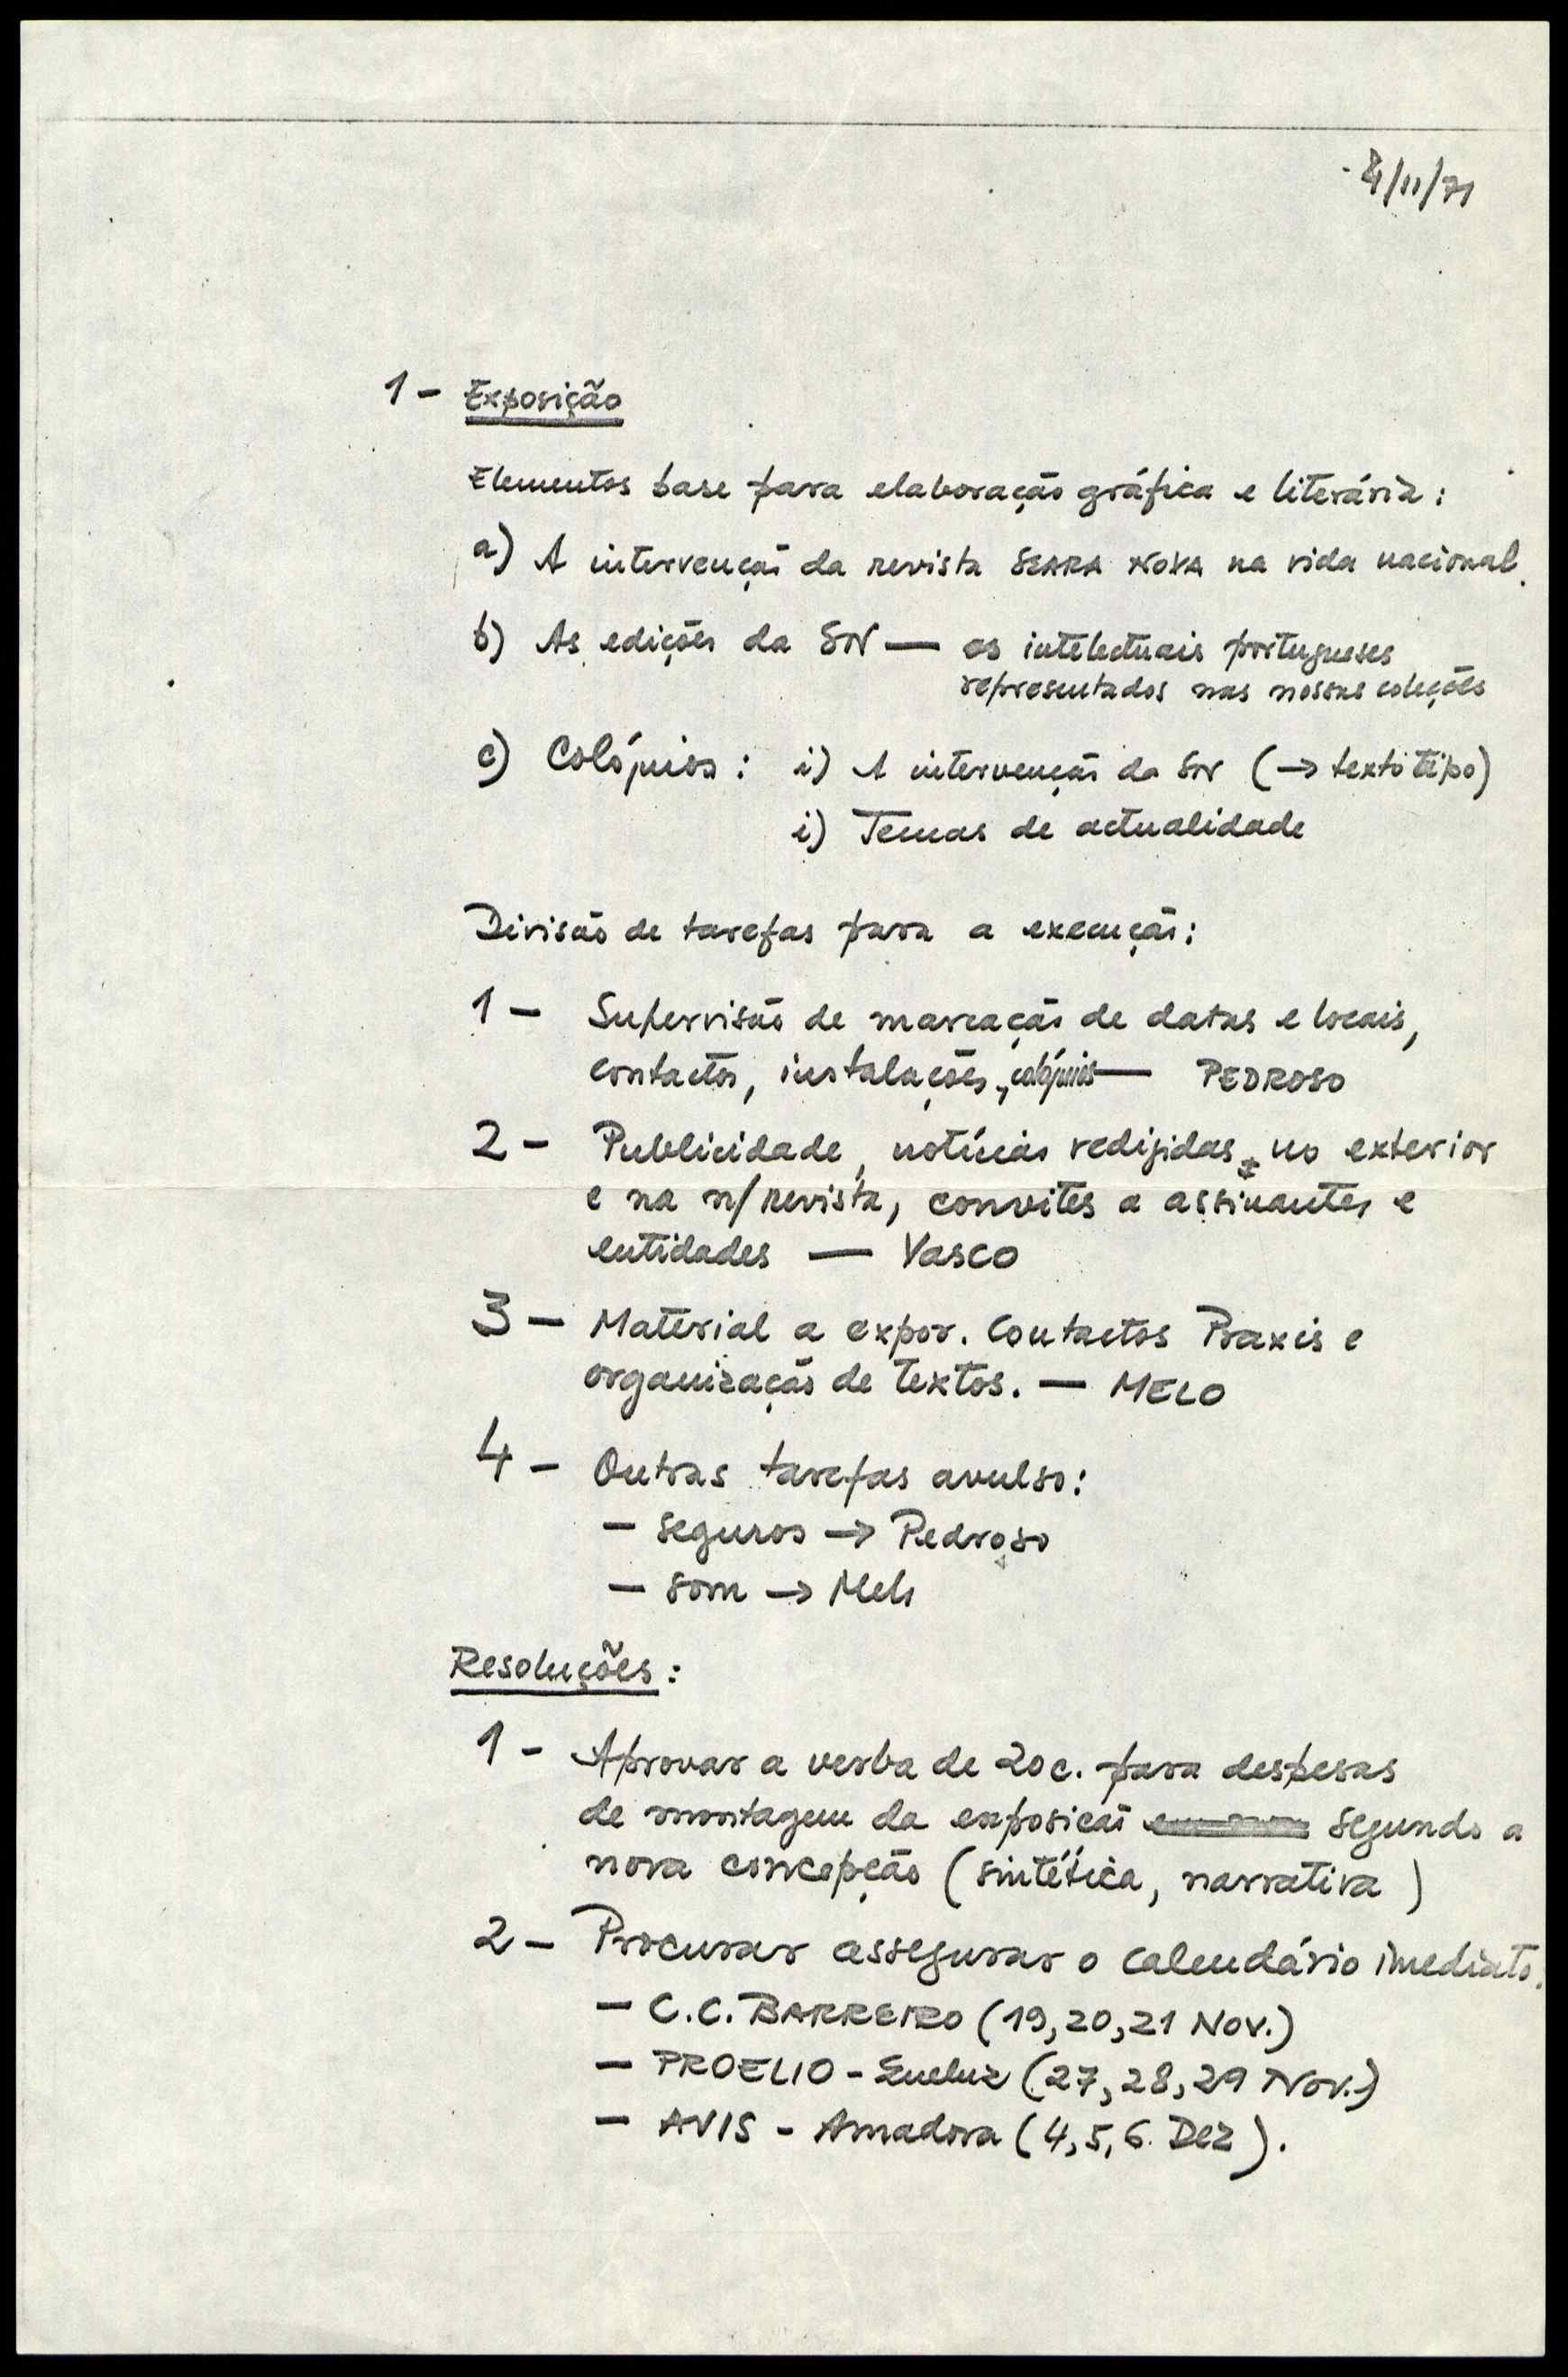 4/11/71
1 - Exposição
Elementos base para elaboração gráfica e literária:
a) A intervenção da revista SEARA NOVA na vida nacional.
b) As edições da SN — os intelectuais portugueses
representados nas nossas colecções
c) Colóquios: i) A intervenção da SN (→ texto tipo)
i) Temas de actualidade
Divisão de tarefas para a execução:
1 - Supervisão de marcação de datas e locais,
contactos, instalações, colóquios — PEDROSO
2 - Publicidade, notícias redigidas, no exterior
e na n/ revista, convites a assinantes e
entidades — Vasco
3 - Material a expor. Contactos Praxis e
organização de textos. — MELO
4 - Outras tarefas avulso:
- seguros → Pedroso
- som → Melo
Resoluções:
1 - Aprovar a verba de 20 c. para despesas
de montagem da exposição segundo a
nova concepção (sintética, narrativa)
2 - Procurar assegurar o calendário imediato.
- C.C. BARREIRO (19, 20, 21 Nov.)
- PROELIO - Queluz (27, 28, 29 Nov.)
- AVIS - Amadora (4, 5, 6 Dez).